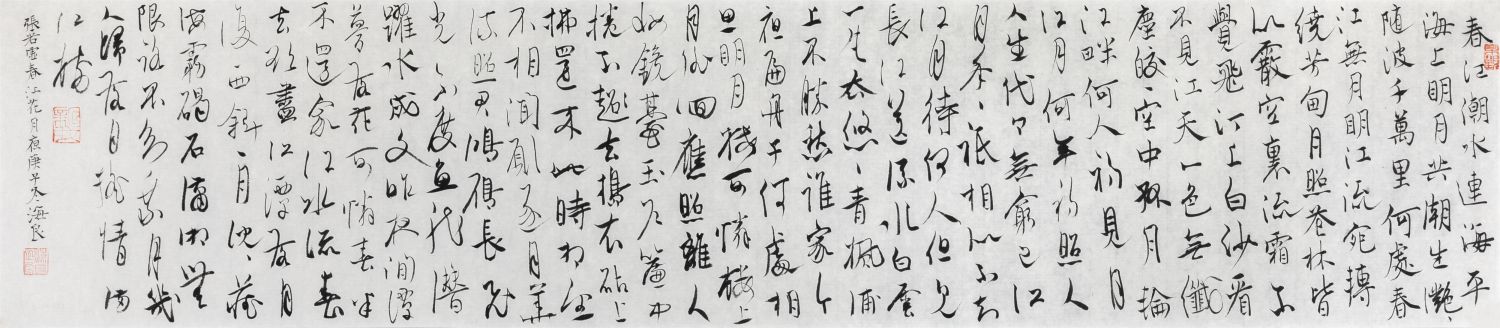 春江潮水連海平
海上明月共潮生灔〻
隨波千萬里何處春
江無月明江流宛轉
繞芳甸月照花林皆
似霰空裏流霜不
覺飛汀上白沙看
不見江天一色無纖
塵皎〻空中孤月輪
江畔何人初見月
江月何年初照人
人生代〻無窮已江
月年〻祗相似不知
江月待何人但見
長江送流水白雲
一片去悠〻青楓浦
上不勝愁誰家今
夜扁舟子何處相
思明月樓可憐樓上
月徘徊應照離人
妝鏡臺玉戶簾中
捲不去搗衣砧上
拂還來此時相望
不相聞願逐月華
流照君鴻雁長飛
光不度魚龍潛
躍水成文昨夜閒潭
夢落花可憐春半
不還家江水流春
去欲盡江潭落月
復西斜〻月沉〻藏
海霧碣石瀟湘無
限路不知乘月幾
人歸落月搖情滿
江樹
張若虛春江花月夜庚子冬海良